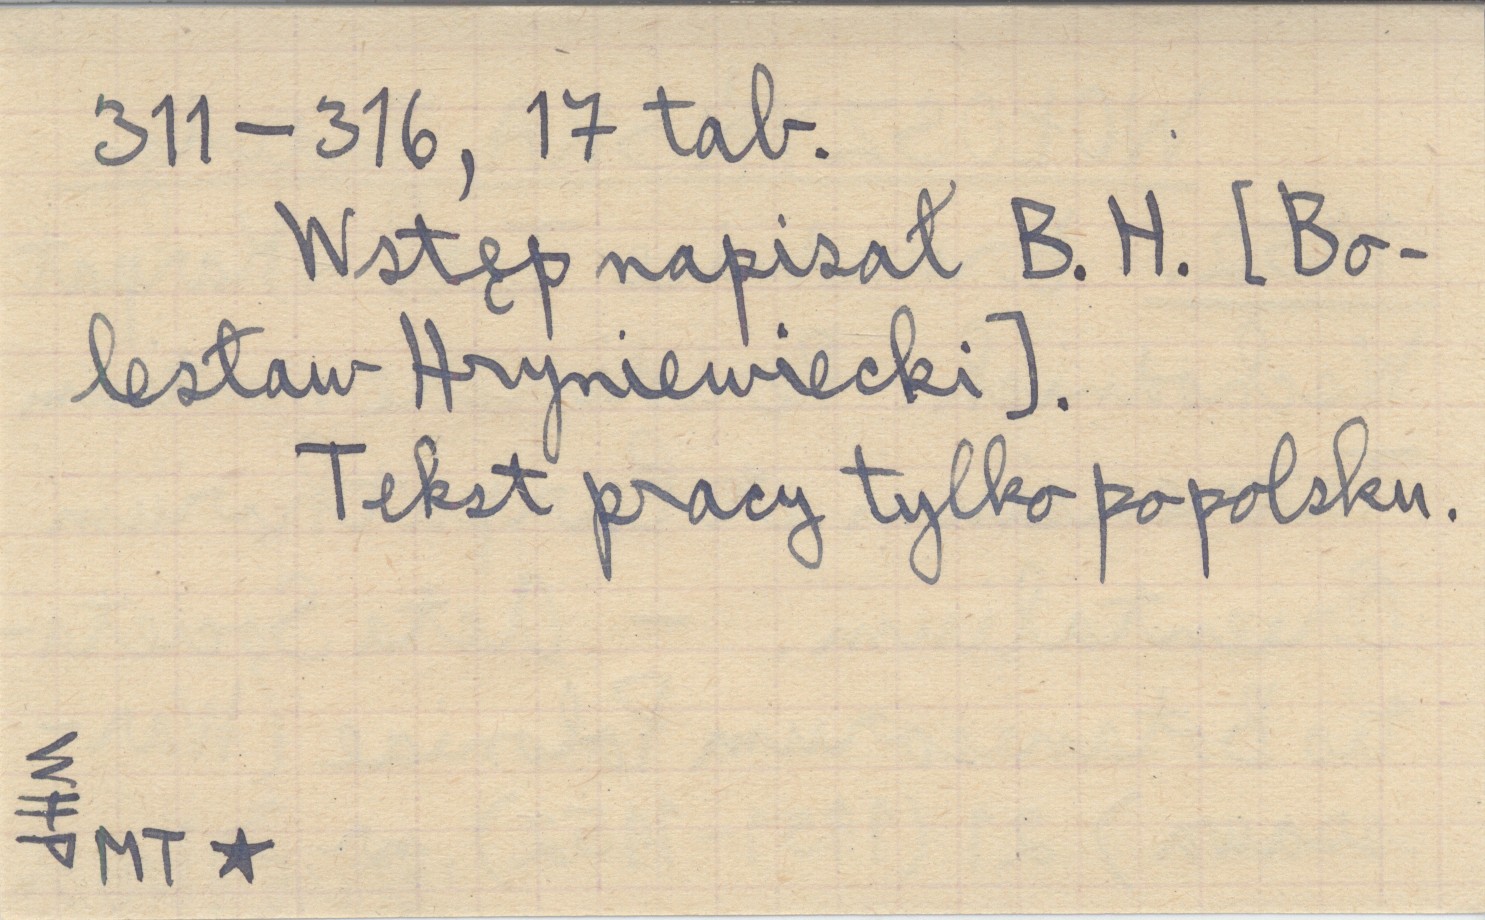 311–316, 17 tab.
Wstęp napisał B. H. [Bo-
lesław Hryniewiecki].
Tekst pracy tylko po polsku.
WHP
MT ★